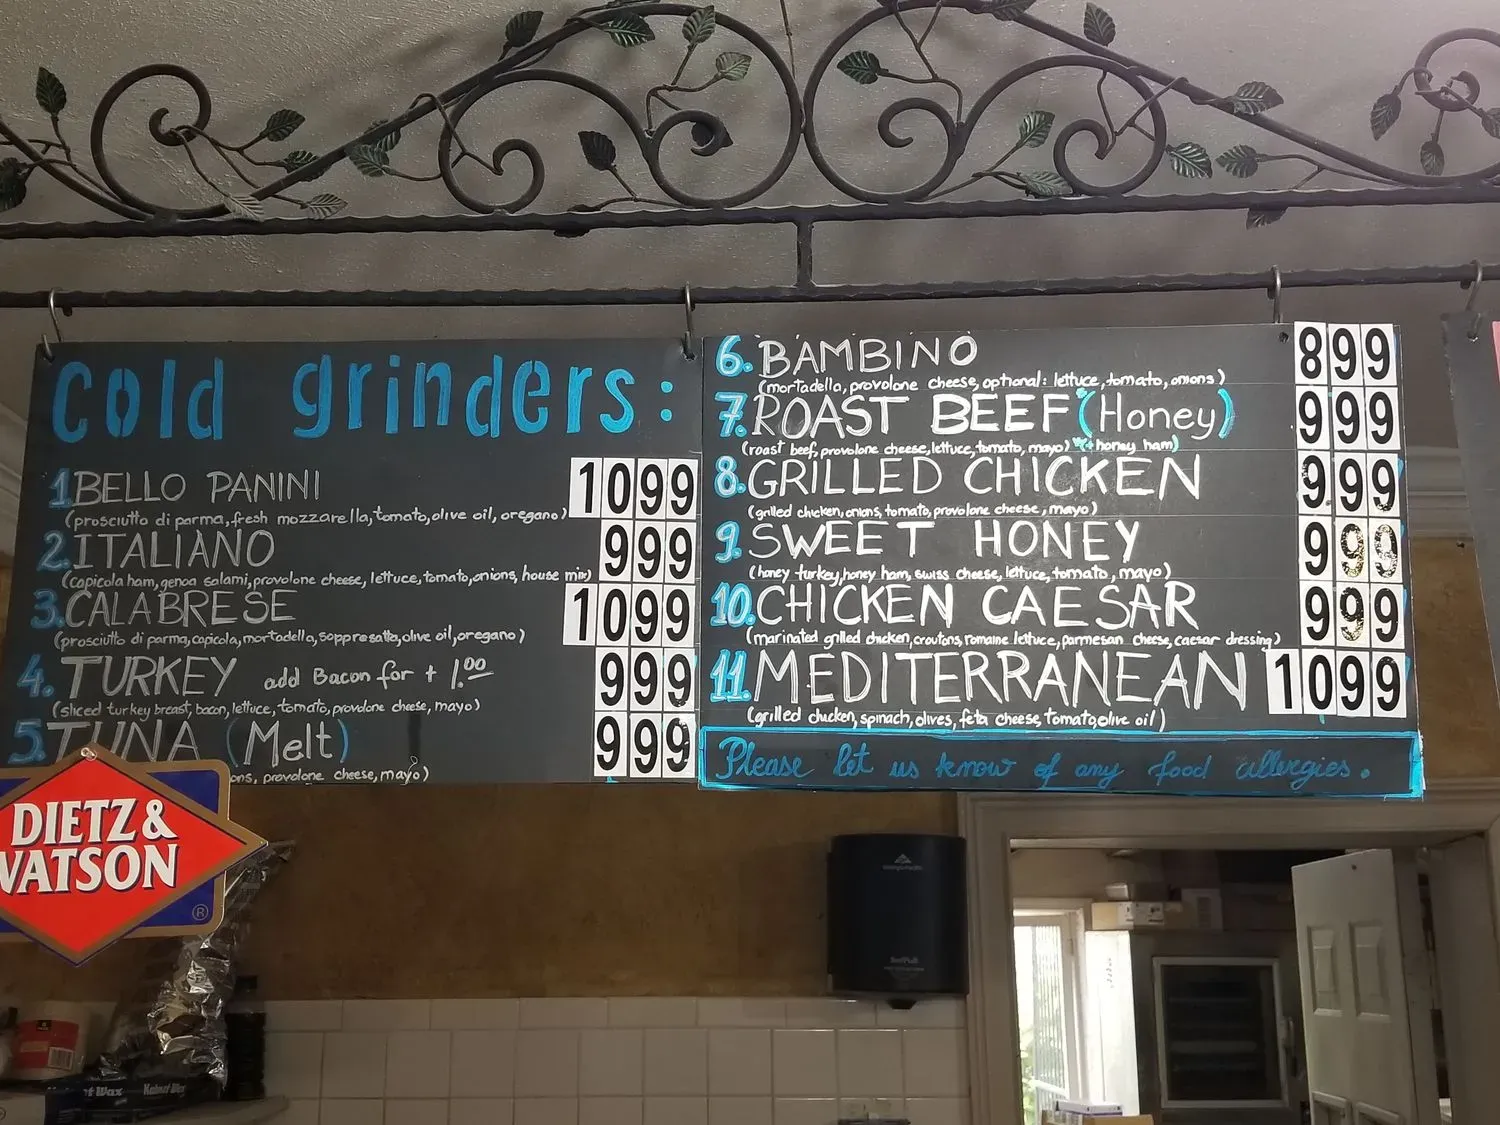 Cold grinders:
1 BELLO PANINI 1099
(prosciutto di parma, fresh mozzarella, tomato, olive oil, oregano)
2. ITALIANO 999
(capicola ham, genoa salami, provolone cheese, lettuce, tomato, onions, house mix)
3. CALABRESE 1099
(prosciutto di parma, capicola, mortadello, soppresatta, olive oil, oregano)
4. TURKEY add Bacon for + 1.00 999
(sliced turkey breast, bacon, lettuce, tomato, provolone cheese, mayo)
5. TUNA (Melt) 999
ons, provolone cheese, mayo)
6. BAMBINO 899
(mortadella, provolone cheese, optional: lettuce, tomato, onions)
7. ROAST BEEF (Honey) 999
(roast beef, provolone cheese, lettuce, tomato, mayo) (+honey ham)
8. GRILLED CHICKEN 999
(grilled chicken, onions, tomato, provolone cheese, mayo)
9. SWEET HONEY 999
(honey turkey, honey ham, swiss cheese, lettuce, tomato, mayo)
10. CHICKEN CAESAR 999
(marinated grilled chicken, croutons, romaine lettuce, parmesan cheese, caesar dressing)
11. MEDITERRANEAN 1099
(grilled chicken, spinach, olives, feta cheese, tomato, olive oil)
Please let us know of any food allergies.
DIETZ &
WATSON
®
Wax
Wax